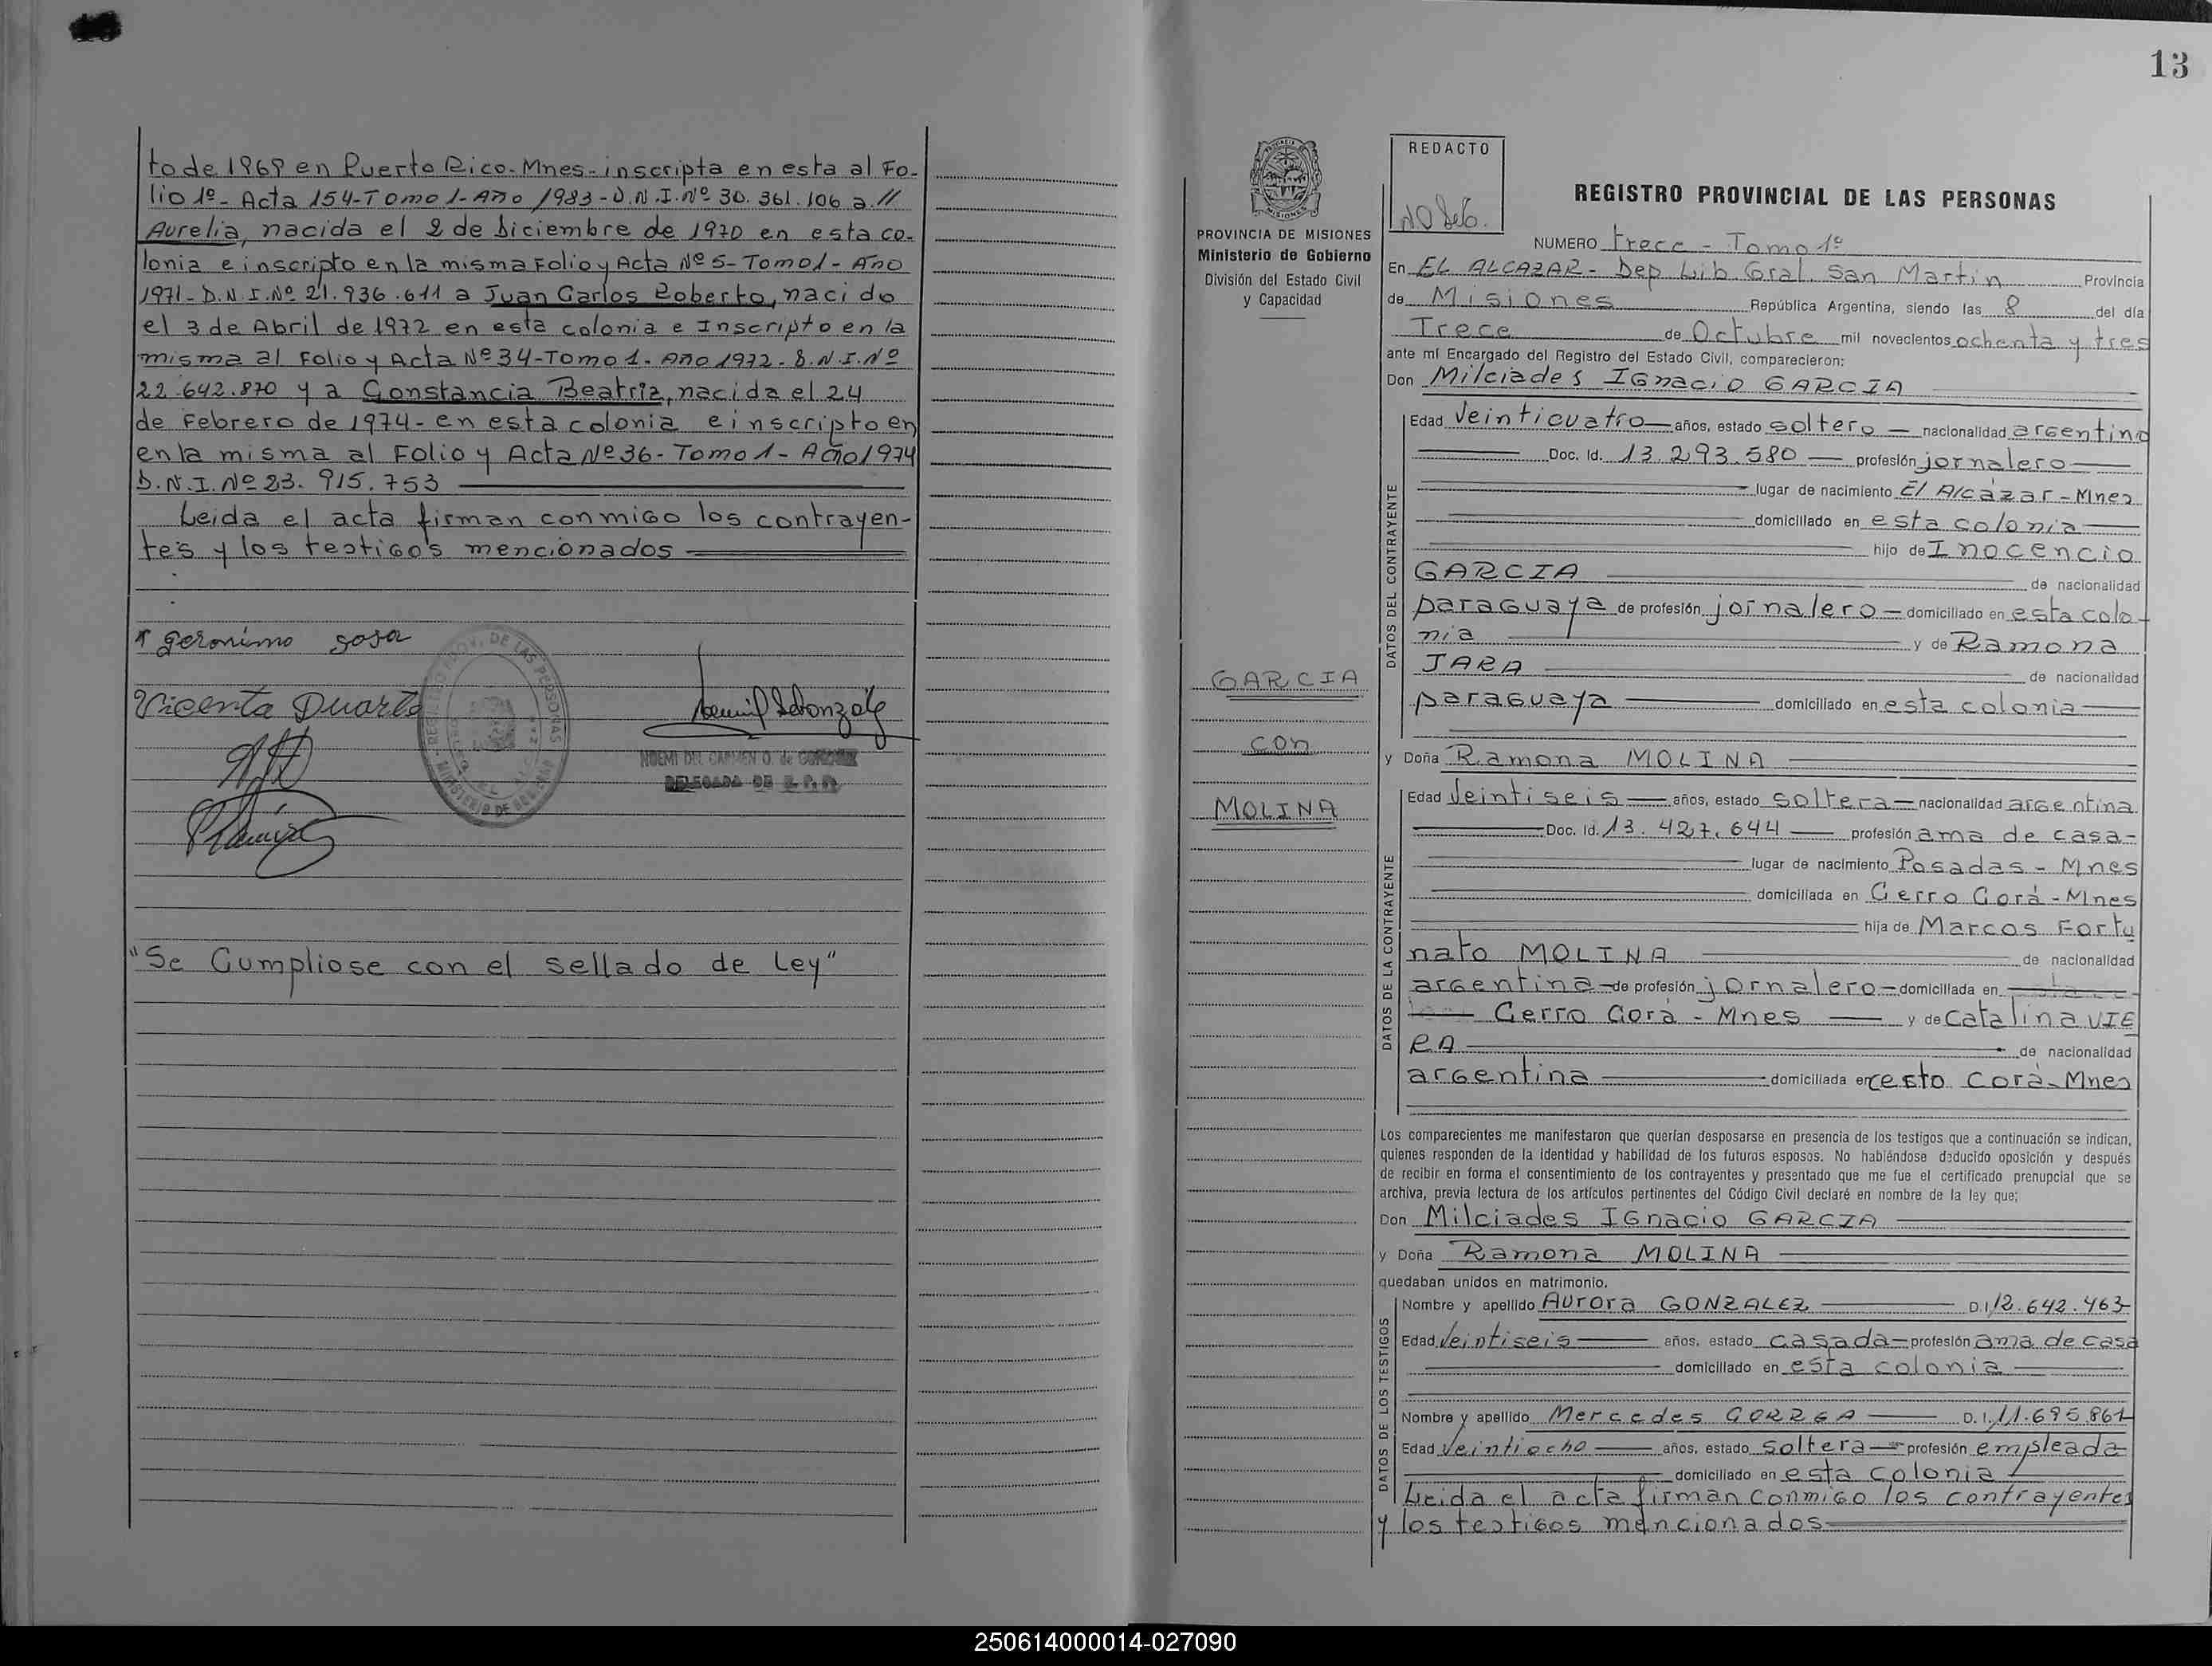 to de 1969 en Puerto Rico-Mnes-inscripta en esta al Fo-
lio 1º- Acta 154-Tomo 1-Año 1983-D.N.I.Nº 30.361.106 a //
Aurelia, nacida el 2 de Diciembre de 1970 en esta co-
lonia e inscripto en la misma Folio y Acta Nº 5-Tomo 1-Año
1971-D.N.I.Nº 21.936.611 a Juan Carlos Roberto, nacido
el 3 de Abril de 1972 en esta colonia e Inscripto en la
misma al Folio y Acta Nº 34-Tomo 1-Año 1972-D.N.I.Nº
22.642.870 y a Constancia Beatriz, nacida el 24
de Febrero de 1974-en esta colonia e inscripto en
en la misma al Folio y Acta Nº 36-Tomo 1-Año 1974
D.N.I.Nº 23.915.753
Leida el acta firman conmigo los contrayen-
tes y los testigos mencionados
geronimo sosa
Vicenta Duarte
NOEMI DEL CARMEN O. de GONZALEZ
DELEGADA DE R.P.P.
"Se Cumpliose con el sellado de Ley"
13
PROVINCIA DE MISIONES
Ministerio de Gobierno
División del Estado Civil
y Capacidad
GARCIA
con
MOLINA
REDACTO
REGISTRO PROVINCIAL DE LAS PERSONAS
NUMERO trece - Tomo 1º
En EL ALCAZAR- Dep Lib Gral. San Martin Provincia
de Misiones República Argentina, siendo las 8 del día
Trece de Octubre mil novecientos ochenta y tres
ante mí Encargado del Registro del Estado Civil, comparecieron:
Don Milciades IGnacio GARCIA
DATOS DEL CONTRAYENTE
Edad Veinticuatro años, estado soltero nacionalidad argentina
Doc. Id. 13.293.580 profesión jornalero
lugar de nacimiento El Alcázar-Mnes
domiciliado en esta colonia
hijo de Inocencio
GARCIA de nacionalidad
paraguaya de profesión jornalero domiciliado en esta colo
nia y de Ramona
JARA de nacionalidad
paraguaya domiciliado en esta colonia
y Doña Ramona MOLINA
DATOS DE LA CONTRAYENTE
Edad Veintiseis años, estado soltera nacionalidad argentina
Doc. Id. 13.427.644 profesión ama de casa-
lugar de nacimiento Posadas - Mnes
domiciliada en Cerro Corá-Mnes
hija de Marcos Fortu
nato MOLINA de nacionalidad
argentina de profesión jornalero domiciliada en
Cerro Corà - Mnes y de Catalina VIE
RA de nacionalidad
argentina domiciliada en cerro Corà-Mnes
Los comparecientes me manifestaron que querían desposarse en presencia de los testigos que a continuación se indican,
quienes responden de la identidad y habilidad de los futuros esposos. No habiéndose deducido oposición y después
de recibir en forma el consentimiento de los contrayentes y presentado que me fue el certificado prenupcial que se
archiva, previa lectura de los artículos pertinentes del Código Civil declaré en nombre de la ley que;
Don Milciades IGnacio GARCIA
y Doña Ramona MOLINA
quedaban unidos en matrimonio.
DATOS DE LOS TESTIGOS
Nombre y apellido Aurora GONZALEZ D.I. 12.642.463
Edad Veintiseis años, estado casada profesión ama de casa
domiciliado en esta colonia
Nombre y apellido Mercedes CORREA D.I. 11.695.861
Edad Veintiocho años, estado soltera profesión empleada
domiciliado en esta colonia
Leida el acta firman conmigo los contrayentes
y los testigos mencionados
250614000014-027090